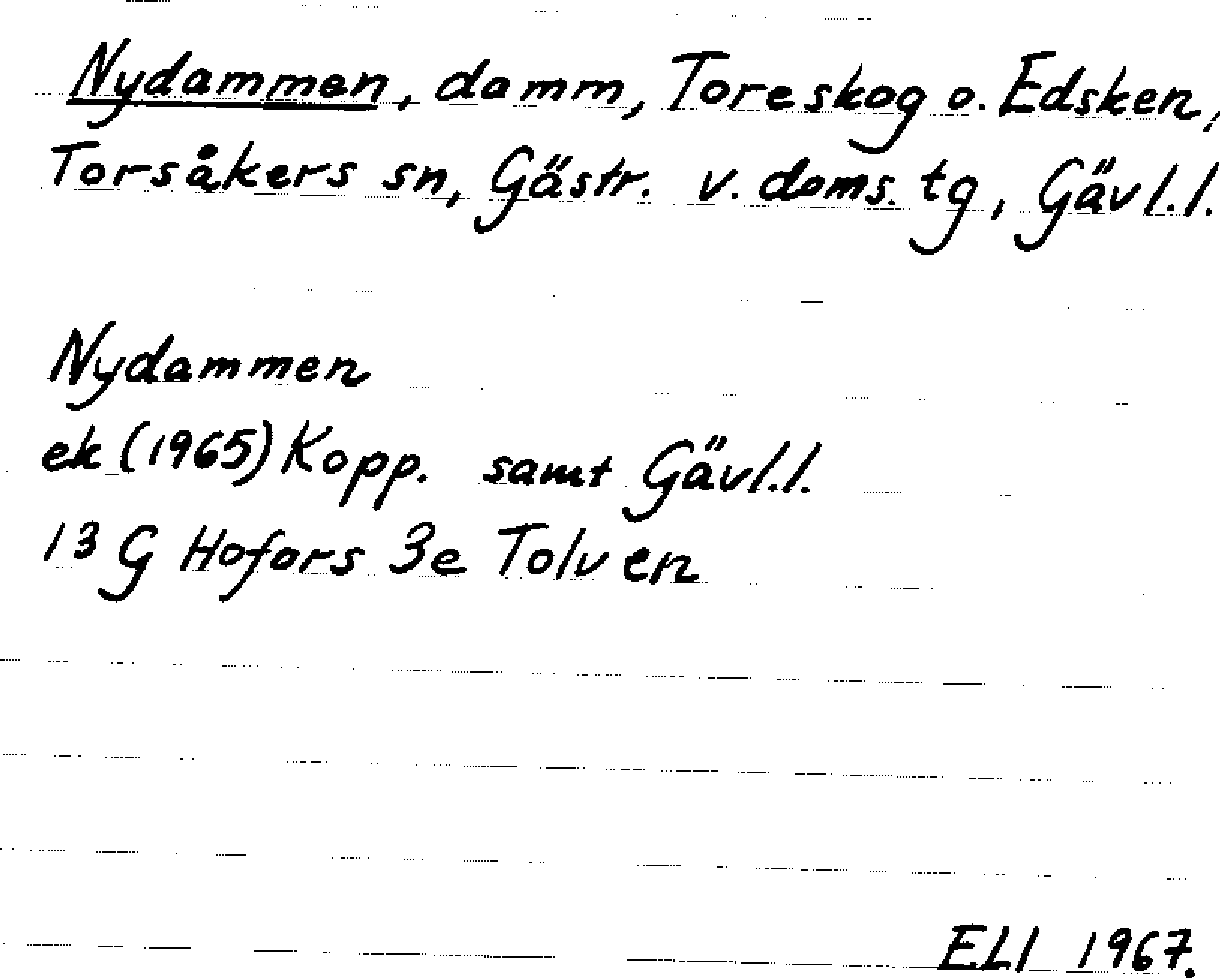 Nydammen, damm, Toreskog o. Edsken,
Torsåkers sn, Gästr. v. doms. tg, Gävl.l.
Nydammen
ek (1965) Kopp. samt Gävl.l.
13 G Hofors 3e Tolven
ELI 1967.